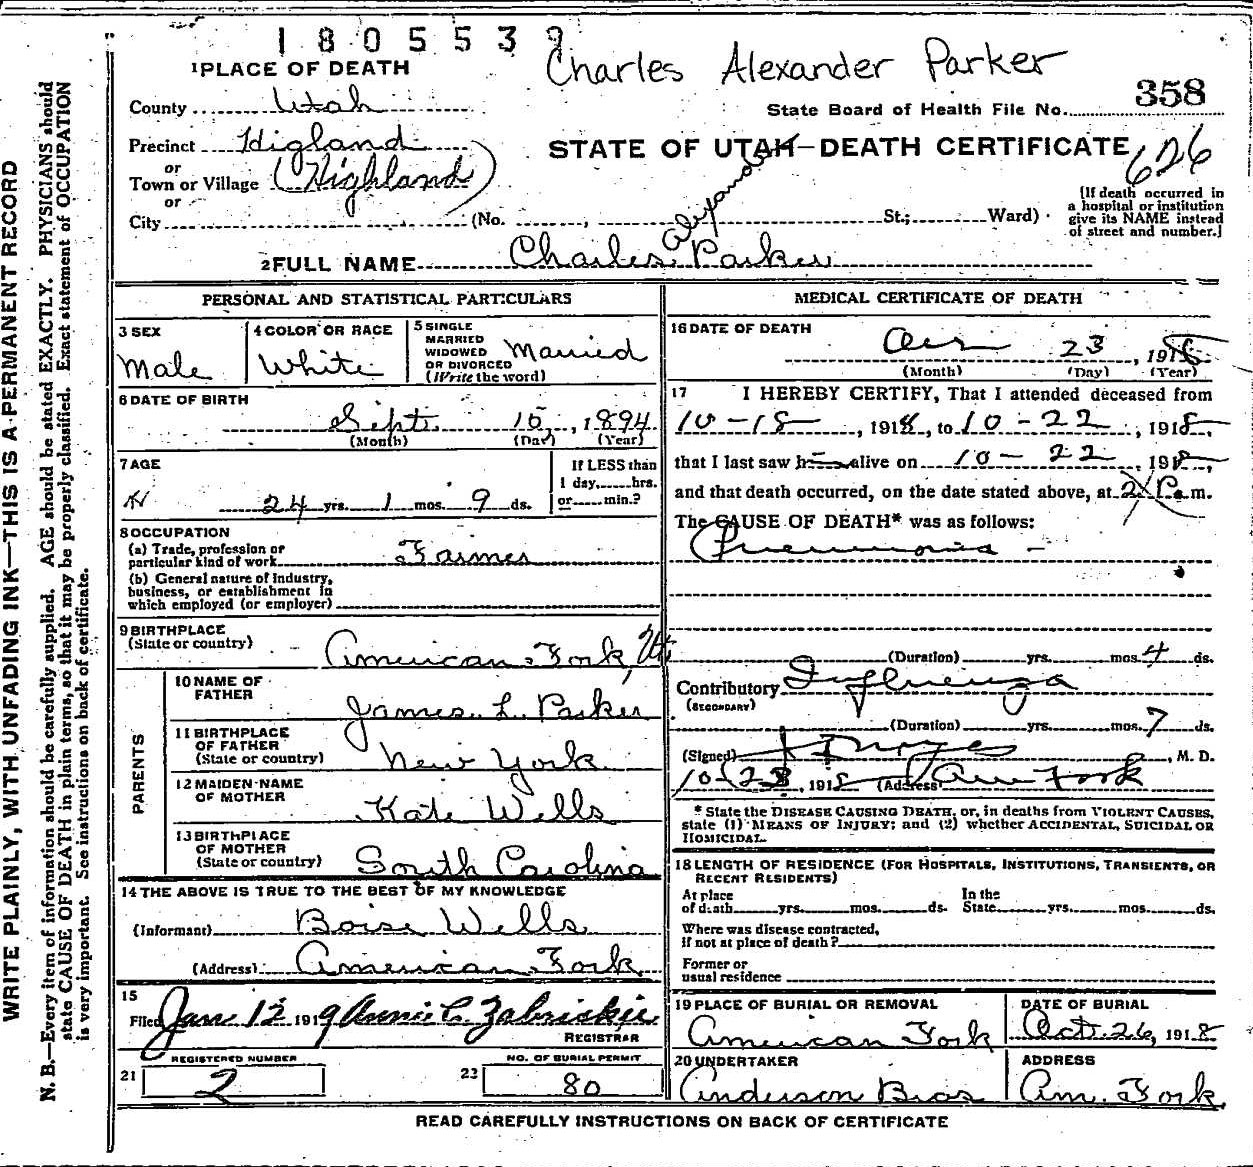 1805539
Charles Alexander Parker
1 PLACE OF DEATH
State Board of Health File No. 358
County Utah
Precinct Higland
STATE OF UTAH—DEATH CERTIFICATE 626
or
Town or Village (Highland)
or
City (No. , St.; Ward)
[If death occurred in
a hospital or institution
give its NAME instead
of street and number.]
Alexander
2 FULL NAME Charles Parker
PERSONAL AND STATISTICAL PARTICULARS
3 SEX
Male
4 COLOR OR RACE
White
5 SINGLE
MARRIED
WIDOWED
OR DIVORCED
(Write the word)
Married
6 DATE OF BIRTH
Sept. 15, 1894
(Month) (Day) (Year)
7 AGE
24 yrs. 1 mos. 9 ds.
If LESS than
1 day,......hrs.
or......min.?
8 OCCUPATION
(a) Trade, profession or
particular kind of work Farmer
(b) General nature of industry,
business, or establishment in
which employed (or employer)
9 BIRTHPLACE
(State or country) American Fork, Ut.
PARENTS
10 NAME OF
FATHER
James L. Parker
11 BIRTHPLACE
OF FATHER
(State or country) New York
12 MAIDEN NAME
OF MOTHER
Kate Wells
13 BIRTHPLACE
OF MOTHER
(State or country) South Carolina
14 THE ABOVE IS TRUE TO THE BEST OF MY KNOWLEDGE
(Informant) Boise Wells
(Address) American Fork
15
Filed Jan 12 1919 Annie C. Zabriskie
REGISTRAR
REGISTERED NUMBER
21 2
NO. OF BURIAL PERMIT
23 80
MEDICAL CERTIFICATE OF DEATH
16 DATE OF DEATH
23, 1918
(Month) (Day) (Year)
17 I HEREBY CERTIFY, That I attended deceased from
10-18, 1918, to 10-22, 1918,
that I last saw h alive on 10-22, 1918,
and that death occurred, on the date stated above, at 2 P. m.
The CAUSE OF DEATH* was as follows:
Pneumonia -
(Duration) yrs. mos. 4 ds.
Contributory Influenza
(SECONDARY)
(Duration) yrs. mos. 7 ds.
(Signed) , M. D.
10-23, 1918 (Address) Am Fork
* State the DISEASE CAUSING DEATH, or, in deaths from VIOLENT CAUSES,
state (1) MEANS OF INJURY; and (2) whether ACCIDENTAL, SUICIDAL OR
HOMICIDAL.
18 LENGTH OF RESIDENCE (FOR HOSPITALS, INSTITUTIONS, TRANSIENTS, OR
RECENT RESIDENTS)
At place
of death yrs. mos. ds.
In the
State yrs. mos. ds.
Where was disease contracted,
if not at place of death?
Former or
usual residence
19 PLACE OF BURIAL OR REMOVAL
American Fork
DATE OF BURIAL
Oct. 26, 1918
20 UNDERTAKER
Anderson Bros
ADDRESS
Am. Fork
READ CAREFULLY INSTRUCTIONS ON BACK OF CERTIFICATE
WRITE PLAINLY, WITH UNFADING INK—THIS IS A PERMANENT RECORD
N. B.—Every item of information should be carefully supplied. AGE should be stated EXACTLY. PHYSICIANS should
state CAUSE OF DEATH in plain terms, so that it may be properly classified. Exact statement of OCCUPATION
is very important. See instructions on back of certificate.